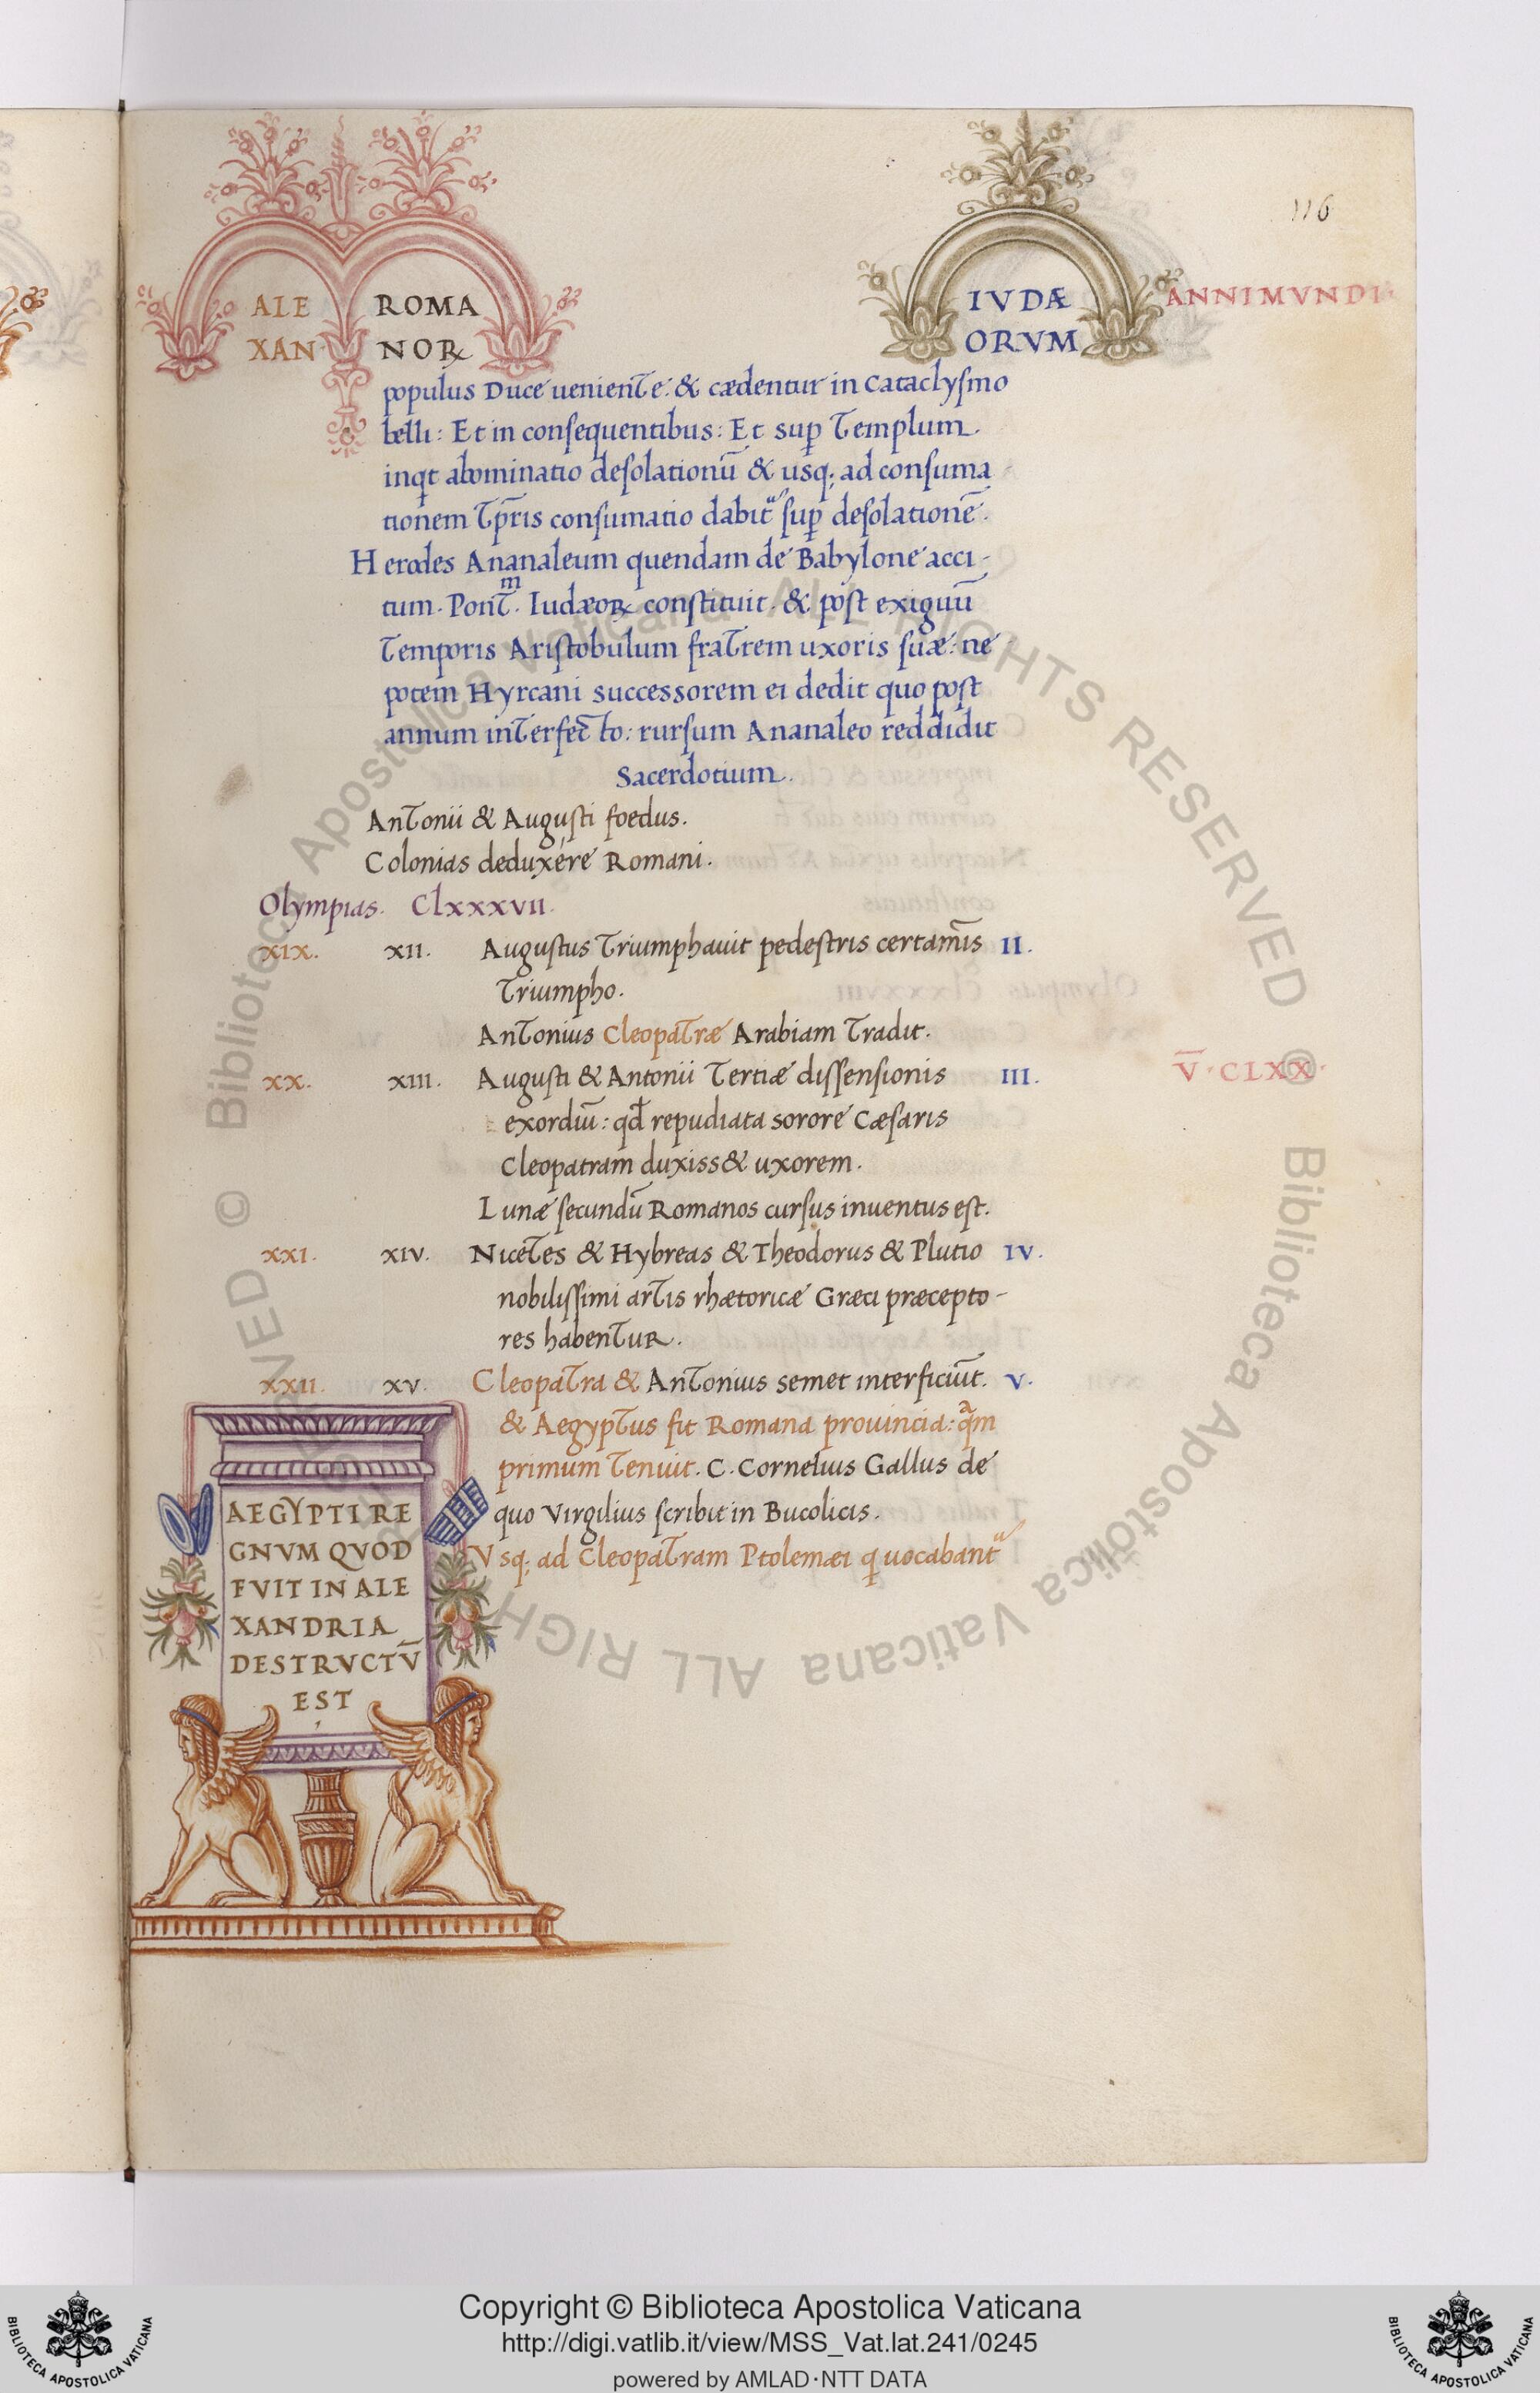 116
ALE ROMA IVDÆ ANNI MVNDI
XAN NOꝜ ORVM
populus Duce ueniente: & cædentur in Cataclysmo
belli: Et in consequentibus: Et suꝑ Templum.
inqt abominatio desolationū & usq; ad consuma
tionem Tp̄ris consumatio dabit᷑ suꝑ desolationē.
Herodes Ananaleum quendam de Babylone acci-
tum. Pont̄.m Iudæoꝝ constituit. & post exiguū
Temporis Aristobulum fratrem uxoris suæ: ne
potem Hyrcani successorem ei dedit quo post
annum interfecto: rursum Ananaleo reddidit
Sacerdotium.
Antonii & Augusti foedus.
Colonias deduxere Romani.
Olympias. Clxxxvii.
xix. xii. Augustus Triumphauit pedestris certam̄is II.
Triumpho.
Antonius Cleopatræ Arabiam Tradit.
xx. xiii. Augusti & Antonii Tertiæ dissensionis III. V̄.CLXX.
exordiū: qd̄ repudiata sorore Cæsaris
Cleopatram duxiss& uxorem.
Lunæ secundū Romanos cursus inuentus est.
xxi. xiv. Nicetes & Hybreas & Theodorus & Plutio IV.
nobilissimi artis rhætoricæ Græci præcepto-
res habentur.
xxii. xv. Cleopatra & Antonius semet interficiūt. V.
& Aegyptus fit Romana prouincia: qᵃm
primum Tenuit. C. Cornelius Gallus de
quo Virgilius scribit in Bucolicis.
Vsq; ad Cleopatram Ptolemæi q uocabant᷑
AEGYPTI RE
GNVM QVOD
FVIT IN ALE
XANDRIA
DESTRVCTV̄
EST
Biblioteca Apostolica Vaticana ALL RIGHTS RESERVED © Biblioteca Apostolica Vaticana ALL RIGHTS RESERVED ©
Copyright © Biblioteca Apostolica Vaticana
http://digi.vatlib.it/view/MSS_Vat.lat.241/0245
powered by AMLAD·NTT DATA
BIBLIOTECA APOSTOLICA VATICANA
BIBLIOTECA APOSTOLICA VATICANA